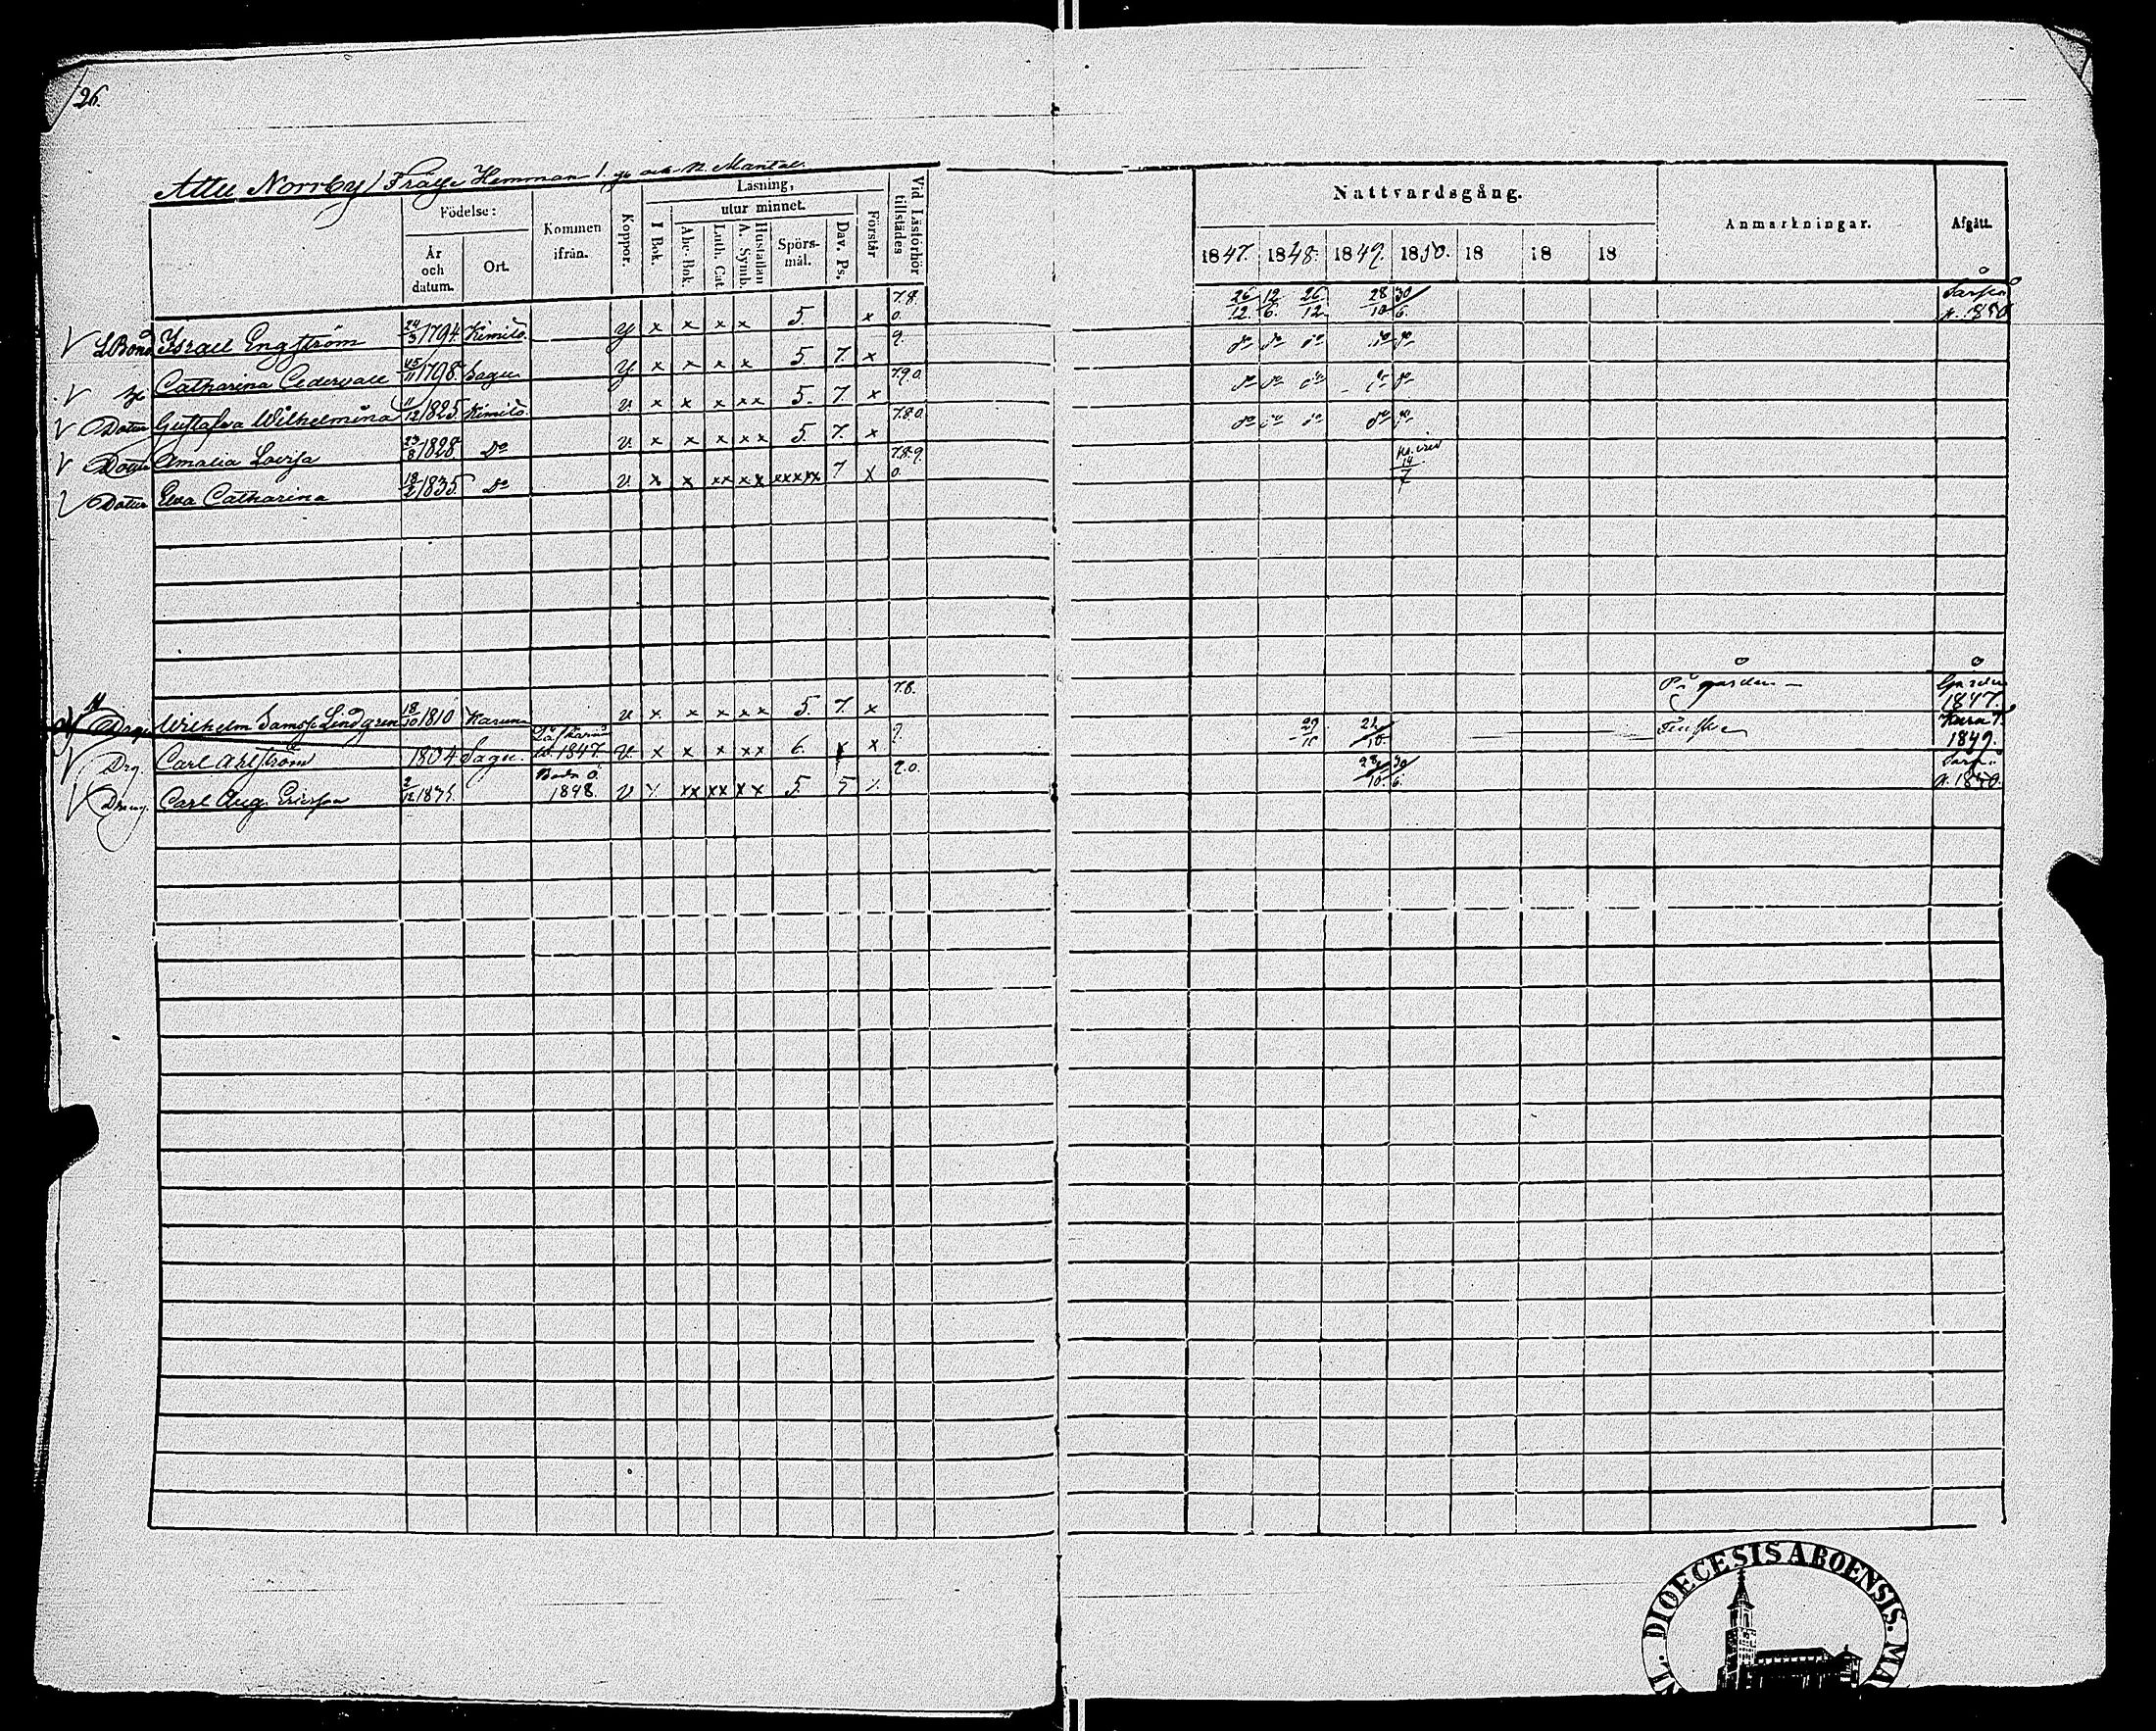 26.
Attu Norrby / Frälse Hemman / och Mantal.
Födelse:
År och datum.
Ort.
Kommen ifrån.
Koppor.
Läsning,
I Bok.
utur minnet.
Abc-Bok.
Luth. Cat.
A. Symb.
Hustaflan
Spörs-mål.
Dav. Ps.
Förstår
Vid Läsförhör tillstädes
Nattvardsgång.
1847. 1848. 1849. 1850. 18 18 18
Anmärkningar.
Afgått.
LBond Israel Engström 24/3 1794 Kimito y x x x x 5. x 7.8.0. 26/12. 12/6. 26/12 28/10 30/6. 1850
Catharina Cedervall 25/11 1798 Sagu y x x x x 5. 7. x 9.
Dotter Gustafva Wilhelmina 11/12 1825 Kimito v. x x x x x 5. 7. x 7.9.0.
Dotter Amalia Lovisa 23/8 1828 Do v x x x x x 5. 7. x 7.8.0.
Dotter Eva Catharina 18/2 1835 Do v x x xx x x xxxxx 7 x 7.8.9.0. 14/7
Wilhelm Samss. Lindgren 18/10 1810 Karuna v x x x x x 5. 7. x 7.8. På gården 1847.
Drg. Carl Ahlström 1804 Sagu. 1847. v. x x x x x 6. x x 29/10 1849.
Dräng. Carl Aug. Ericsson 2/12 1848. v xx xx x x 5 5 9.0. 28/10. 30/6. 1850.
DIOECESIS ABOENSIS.